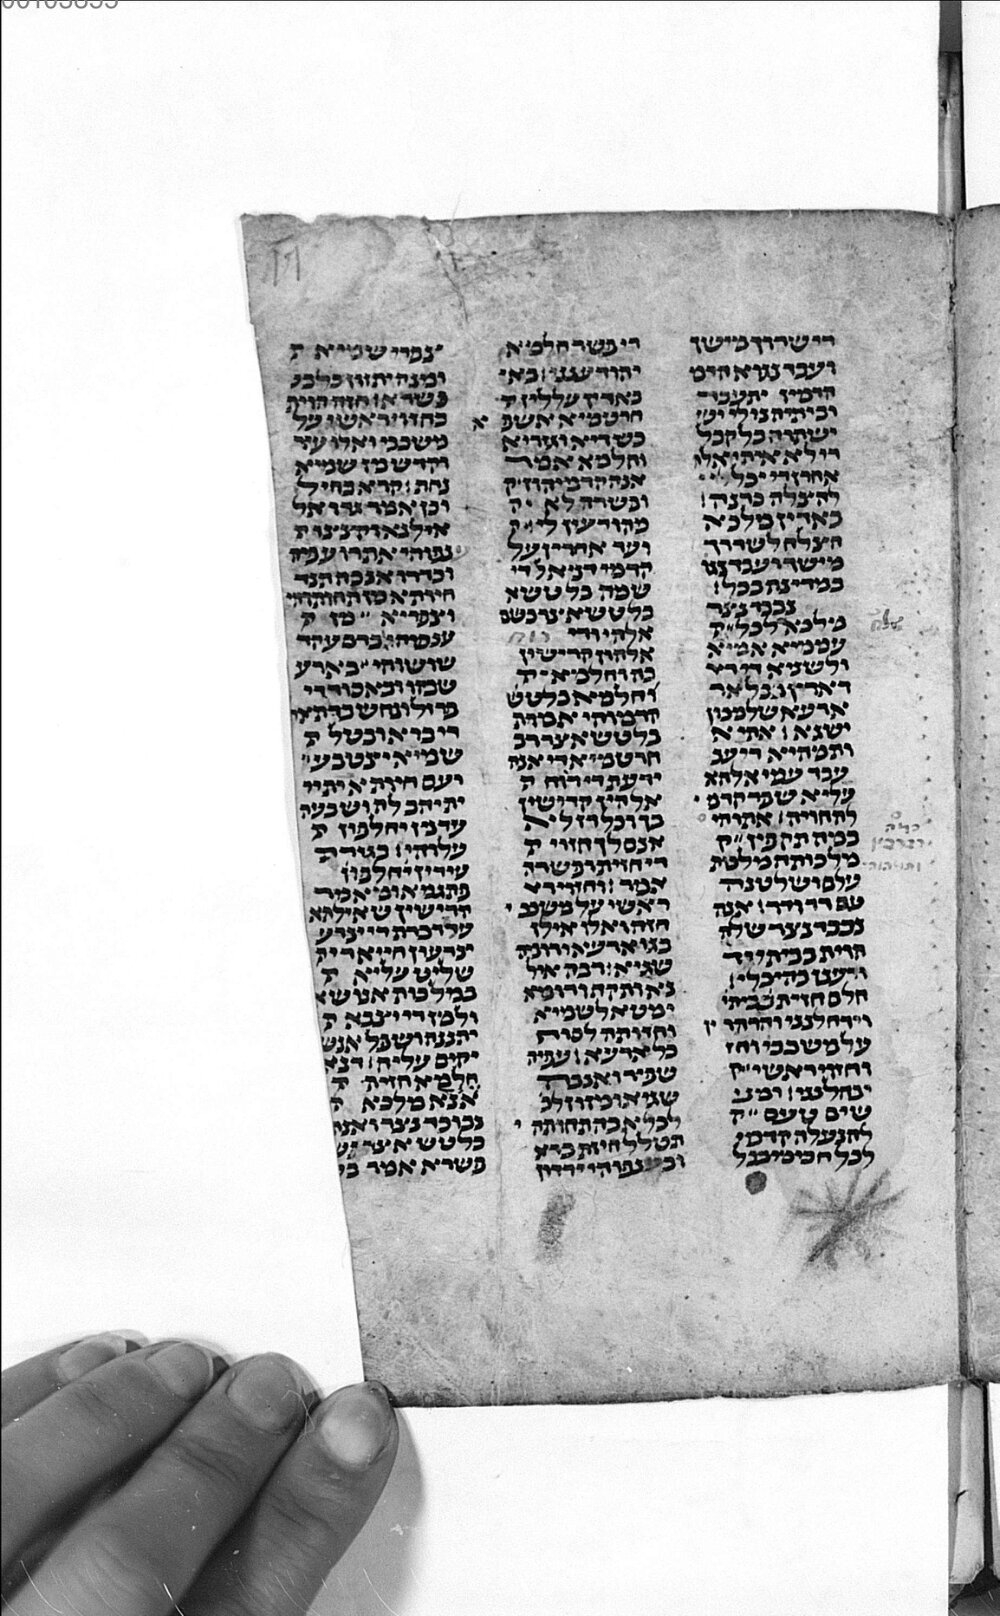 די שדרך מישך
ועבד נגוא הדמ
הדמין יתעבד
וביתיה נולי יש
ישתוה כל קבל
די לא איתי אלה
אחרן די יכל
להצלה כדנה
באדין מלכא
הצלח לשדרך
מישך ועבד נגו
במדינת בבל
נבכדנצר
מלכא לכל
עממיא אמיא
ולשניא די דיר
דארין בכל אר
ארעא שלמכון
ישגא אתיא
ותמהיא די עב
עבד עמי אלהא
עליא שפר קדמי
להחויה אתוהי
כמה תקיפין
מלכותה מלכות
עלם ושלטנה
עם דר ודר אנה
נבכדנצר שלה
הוית בביתי
ורענן בהיכלי
חלם חזית
וידחלנני והרהרין
על משכבי וחז
וחזוי ראשי
יבהלנני ומני
שים טעם
להנעלה קדמי
לכל חכימי בבל
די פשר חלמא
יהודענני בא
באדין עללין
חרטמיא אשפ
כשדיא וגזריא
וחלמא אמר
אנה קדמיהון
ופשרה לא
מהודעין לי
ועד אחרין על
קדמי דניאל די
שמה בלטשא
בלטשאצר כשם
אלהי ודי רוח
אלהין קדישין
בה וחלמא
וחלמא בלטש
קדמוהי אמרת
בלטשאצר רב
חרטמיא די אנה
ידעת די רוח
אלהין קדישין
בך וכל רז לא
אנס לך חזוי
די חזית ופשרה
אמר וחזוי רא
ראשי על משכבי
חזה ואלו אילן
בגו ארעא ורומה
שגיא רבה איל
אילנא ותקף ורומא
ימטא לשמיא
וחזותה לסוף
כל ארעא עפיה
שפיר ואנבה
שגיא ומזון לכ
לכלא בה תחתוהי
תטלל חיות ברא
ובענפוהי ידרון
צפרי שמיא
ומנה יתזין כל
בשרא חזה הוית
בחזוי ראשי על
משכבי ואלו עיר
וקדיש מן שמיא
נחת קרא בחיל
וכן אמר גדו אל
אילנא וקצצו
ענפוהי אתרו עפיה
ובדרו אנבה תנד
חיותא מן תחתוהי
וצפריא מן
ענפוהי ברם עקר
שרשוהי בארעא
שבקו ובאסור די
פרזל ונחש בדתאא
די ברא ובטל
שמיא יצטבע
ועם חיותא
יתיהב לה ושבעה
עדנין יחלפון
עלוהי בגזרת
עירין
פתגמא ומאמר
קדישין שאילתא
על דברת די ינדע
ינדעון חייא די
שליט עליא
במלכות אנושא
ולמן די יצבא
יתננה ושפל אנש
יקים עליה דנא
חלמא חזית
אנא מלכא
נבוכדנצר ואנת
בלטשאצר
פשרא אמר